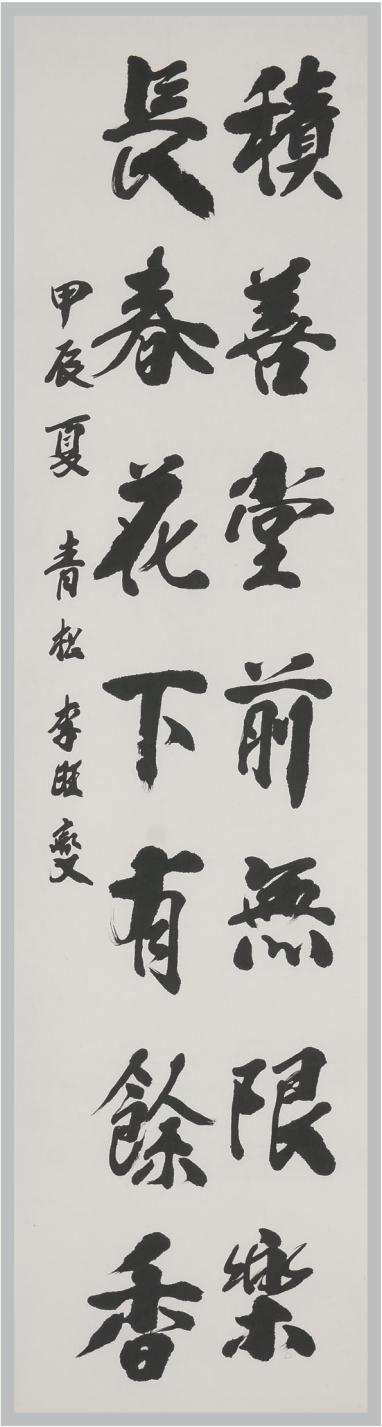 積善堂前無限樂
長春花下有餘香
甲辰夏 青松 李旺燮